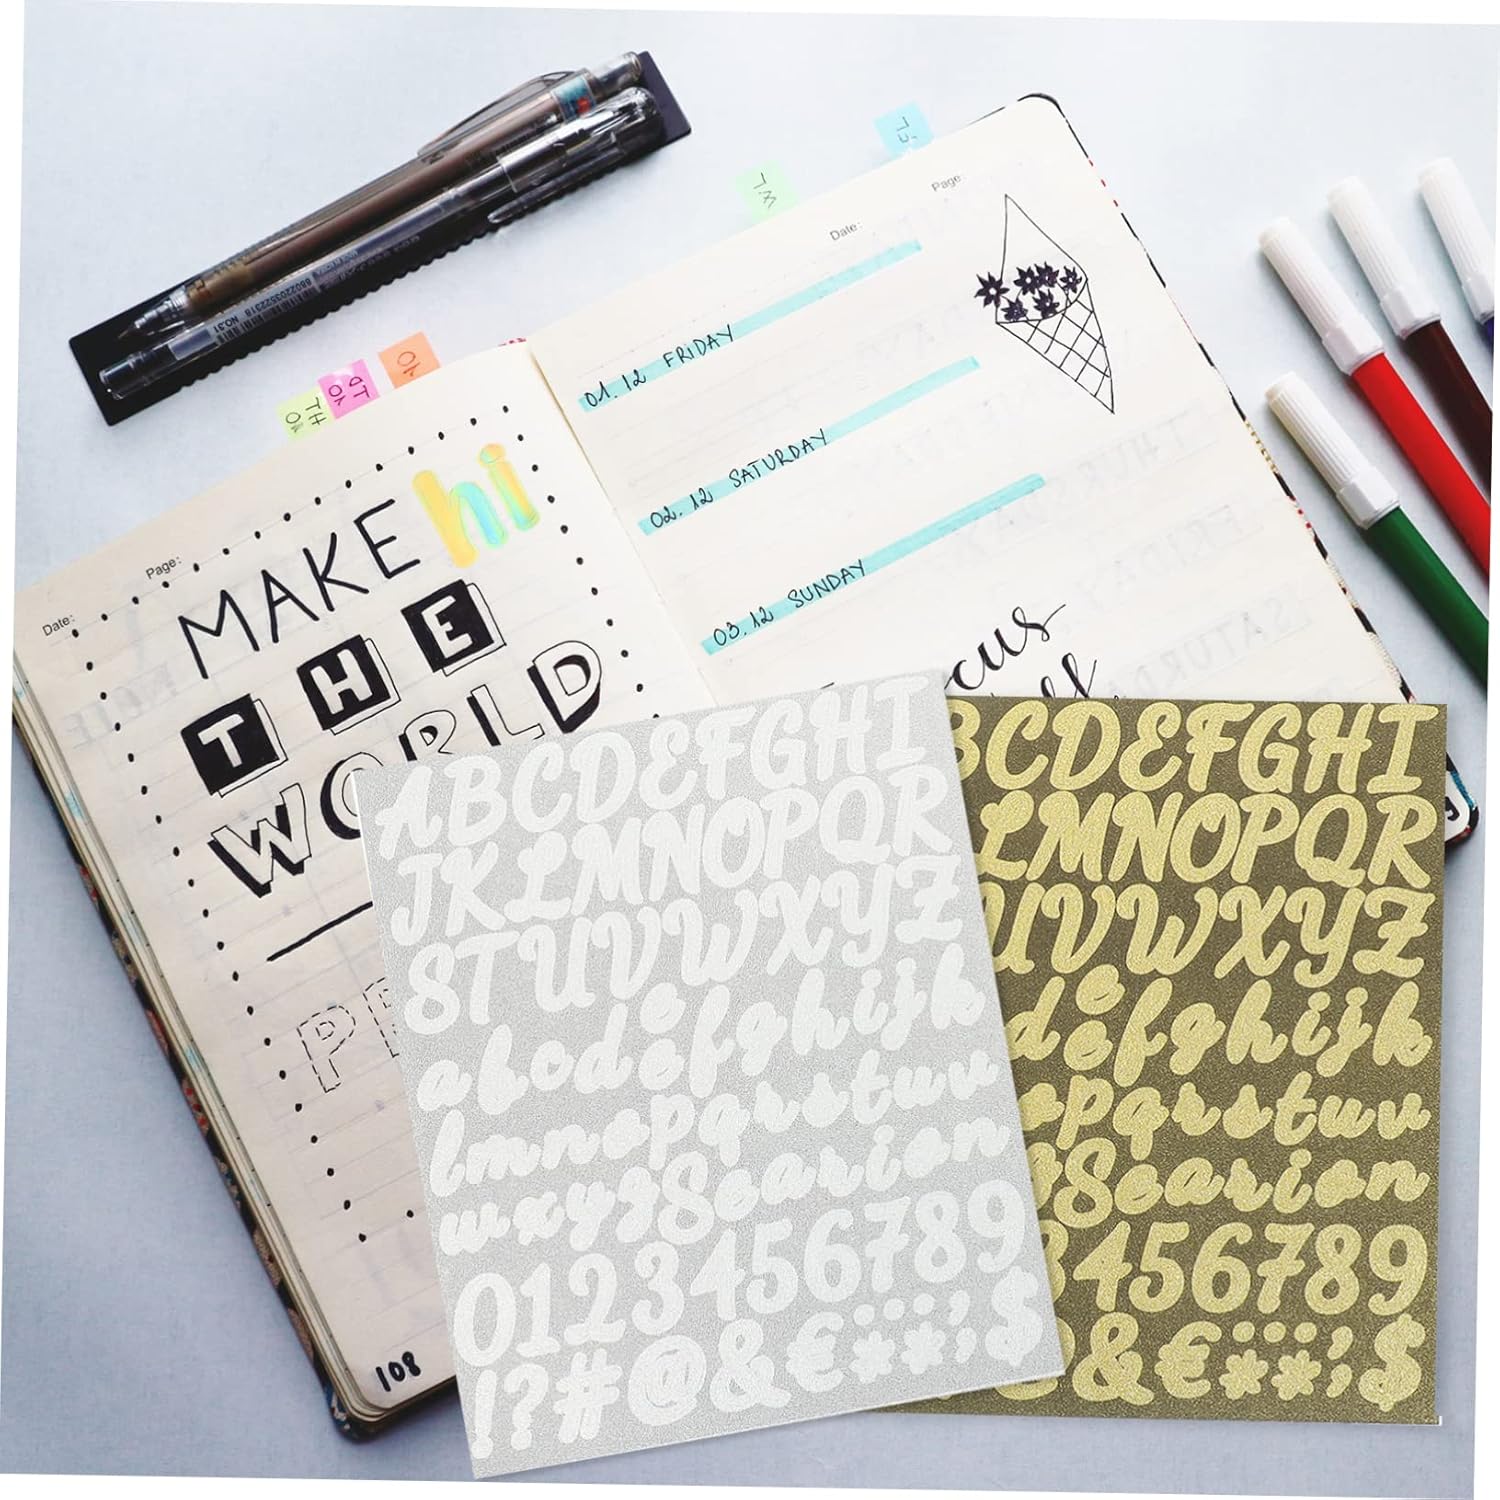 MAKE hi
THE
WORLD
108
Date:
Page:
Date:
Page:
01.12 FRIDAY
02.12 SATURDAY
03.12 SUNDAY
ABCDEFGHI
JKLMNOPQR
STUVWXYZ
abcdeefghijk
lmnopqrstuv
wxyz8earion
0123456789
!?#@&€**;'$
BCDEFGHI
LMNOPQR
UVWXYZ
deefghijk
opqrstuv
8earion
3456789
@&€**;'$